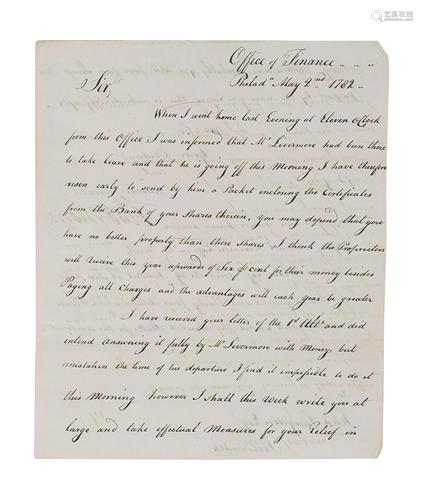 艺典中国
yidianchina.com
Office of Finance
Philada May 2nd 1782
Sir,
When I went home last Evening at Eleven oClock
from this Office I was informed that Mr Livermore had been there
to take leave and that he is going off this Morning I have therefore
risen early to send by him a Packet enclosing the Certificates
from the Bank of your Shares therein, you may depend that you
have no better property than those Shares I think the Proprietors
will receive this year upwards of Six p Cent for their money besides
Paying all Charges and the advantages will each year be greater
I have received your letter of the 1st Ulto and did
intend answering it fully by Mr Livermore with Money, but
mistaken the time of his departure I find it impossible to do it
this Morning however I shall this Week write you at
large and take effectual Measures for your Relief in